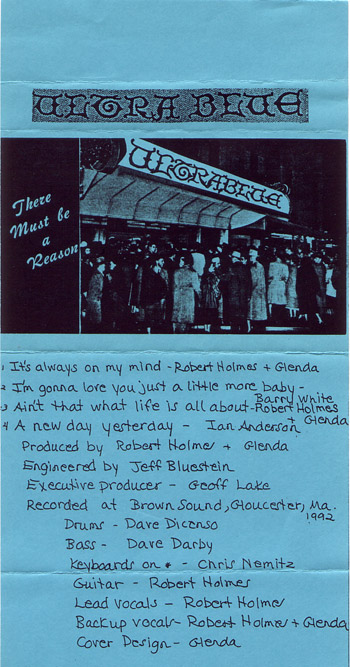 ULTRA BLUE
ULTRABLUE
There
Must be
a
Reason
1 It's always on my mind - Robert Holmes + Glenda
2 I'm gonna love you just a little more baby -
Barry White
3 Ain't that what life is all about - Robert Holmes
+ Glenda
4 A new day yesterday - Ian Anderson
Produced by Robert Holmes + Glenda
Engineered by Jeff Bluestein
Executive Producer - Geoff Lake
Recorded at Brown Sound, Gloucester, Ma.
1992
Drums - Dave Dicenso
Bass - Dave Darby
Keyboards on - Chris Nemitz
Guitar - Robert Holmes
Lead Vocals - Robert Holmes
Backup vocals - Robert Holmes + Glenda
Cover Design - Glenda